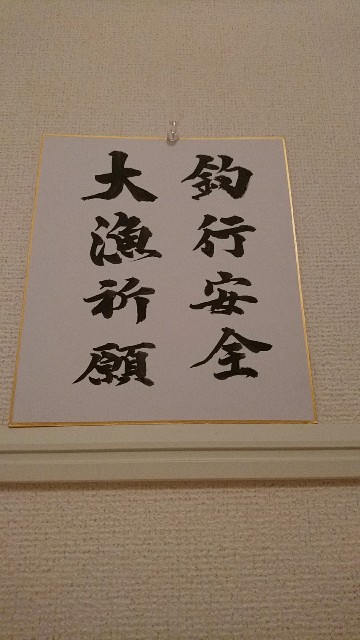 釣行安全
大漁祈願